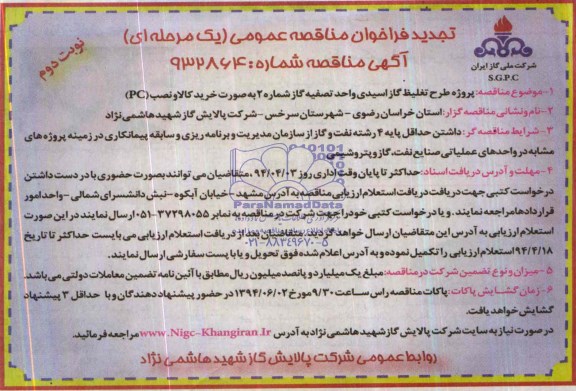 تجدید فراخوان مناقصه عمومی (یک مرحله ای)
آگهی مناقصه شماره: ۹۳۲۸۶۴۰
نوبت دوم
شرکت ملی گاز ایران
S.G.P.C
۱-موضوع مناقصه: پروژه طرح تغلیظ گاز اسیدی واحد تصفیه گاز شماره ۲ به صورت خرید کالا و نصب (PC)
۲-نام و نشانی مناقصه گزار: استان خراسان رضوی - شهرستان سرخس - شرکت پالایش گاز شهید هاشمی نژاد
۳-شرایط مناقصه گر: داشتن حداقل پایه ۴ رشته نفت و گاز از سازمان مدیریت و برنامه ریزی و سابقه پیمانکاری در زمینه پروژه های
مشابه در واحدهای عملیاتی صنایع نفت، گاز و پتروشیمی
۴-مهلت و آدرس دریافت اسناد: حداکثر تا پایان وقت اداری روز ۹۴/۰۴/۰۳. متقاضیان می توانند بصورت حضوری با در دست داشتن
درخواست کتبی جهت دریافت استعلام ارزیابی مناقصه به آدرس مشهد - خیابان آبکوه - نبش دانشسرای شمالی - واحد امور
قراردادها مراجعه نمایند. و یا درخواست کتبی خود را جهت شرکت در مناقصه به نمابر ۳۷۲۹۸۰۵۵-۰۵۱ ارسال نمایند در این صورت
استعلام ارزیابی به آدرس این متقاضیان ارسال خواهد گردید. متقاضیان پس از دریافت استعلام ارزیابی می بایست حداکثر تا تاریخ
۹۴/۴/۱۸ استعلام ارزیابی را تکمیل نموده و به آدرس اعلام شده فوق تحویل و یا با پست سفارشی ارسال نمایند.
۵-میزان و نوع تضمین شرکت در مناقصه: مبلغ یک میلیارد و پانصد میلیون ریال مطابق با آئین نامه تضمین معاملات دولتی می باشد.
۶-زمان گشایش پاکات: پاکات مناقصه راس ساعت ۹/۳۰ مورخ ۱۳۹۴/۰۶/۰۲ در حضور پیشنهاد دهندگان و با حداقل ۳ پیشنهاد
گشایش خواهد یافت.
در صورت نیاز به سایت شرکت پالایش گاز شهید هاشمی نژاد به آدرس www.Nigc-Khangiran.Ir مراجعه فرمائید.
روابط عمومی شرکت پالایش گاز شهید هاشمی نژاد
ParsNamadData
۰۲۱-۸۸۳۴۹۶۷۰-۵